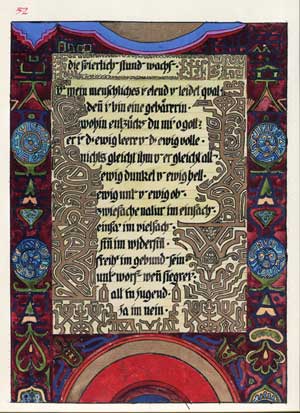 52
die feierlich stund wachs.
mein menschliches elend leidet qual
deñ i bin eine gebärerin.
wohin entzückst du mi o gott?
er i d ewig leere v d ewig volle.
nichts gleicht ihm v er gleicht all
ewig dunkel v ewig hell.
ewig unt v ewig ob.
zwiefache natur im einfach.
einfa im vielfach.
siñ im widersiñ.
freih im gebund sein
unt worf weñ siegrei.
alt in jugend
ja im nein.